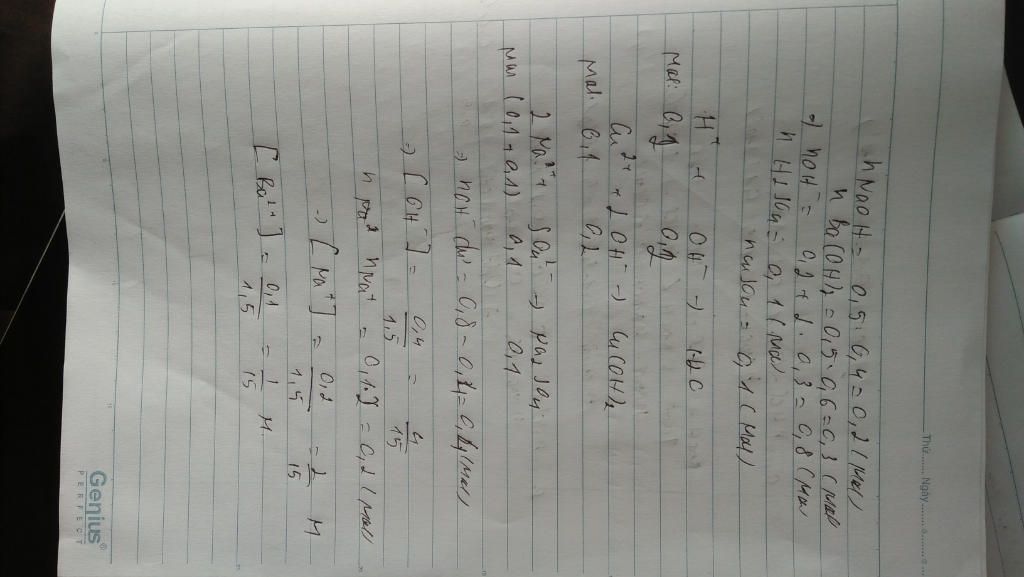 Thứ ...... Ngày
nNaOH = 0,5 · 0,4 = 0,2 (mol)
n Ba(OH)2 = 0,5 · 0,6 = 0,3 (mol)
=> nOH⁻ = 0,2 + 2 · 0,3 = 0,8 (mol
n H2SO4 = 0,1 (mol)
nCuSO4 = 0,1 (mol)
H⁺ + OH⁻ → H2O
mol: 0,2 0,2
Cu²⁺ + 2OH⁻ → Cu(OH)2
mol: 0,1 0,2
SO4²⁻ →
mol (0,1 + 0,1) 0,1 0,1
=> nOH⁻ dư = 0,8 - = (mol)
=> [OH⁻] = 0,4/1,5 = 4/15
nNa⁺ = 0,1.2 = 0,2 (mol)
=> [Na⁺] = 0,2/1,5 = 2/15 M
[Ba²⁺] = 0,1/1,5 = 1/15 M.
Genius®
PERFECT